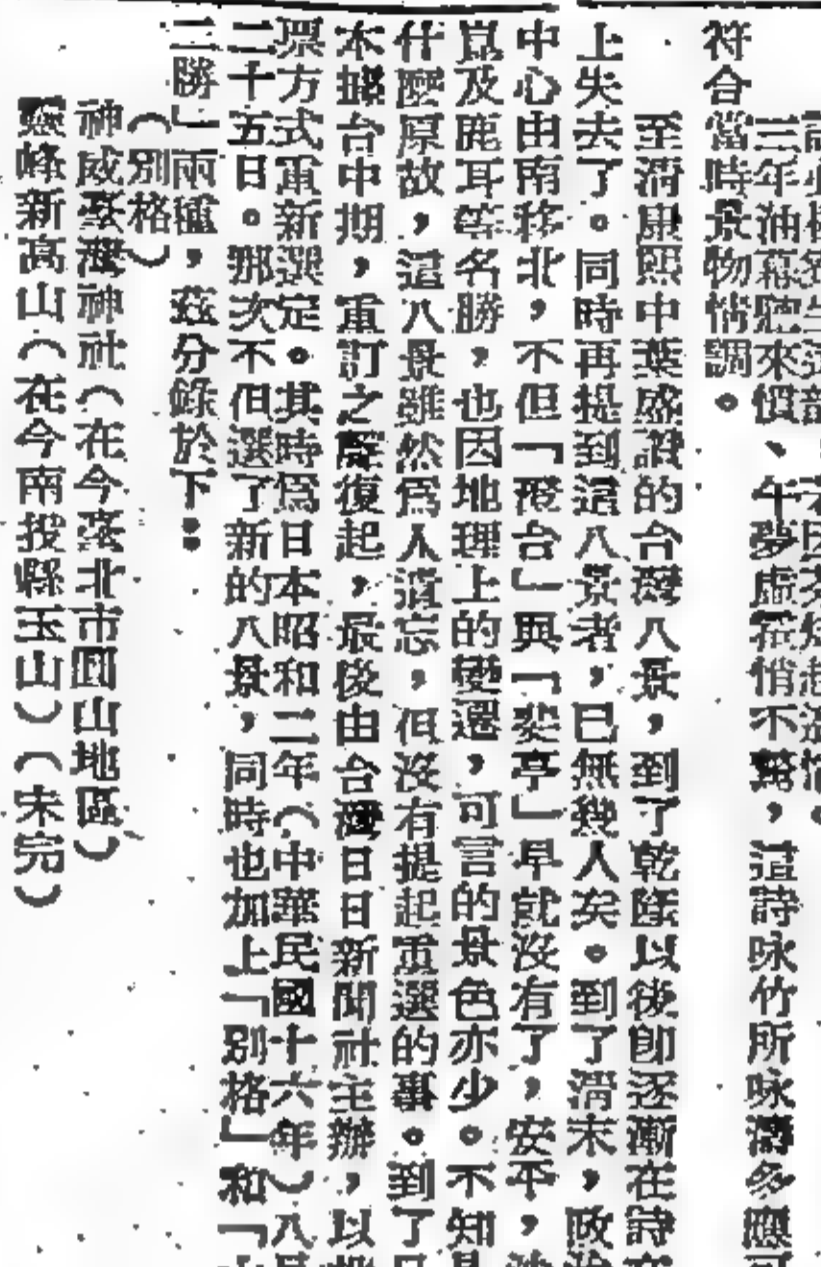 三年油幕聽來慣、午夢虛窓悄不驚,這詩咏竹所咏濤多應可
符合當時景物情調。
至淸康熙中葉盛讚的台灣八景,到了乾隆以後卽逐漸在詩文
上失去了。同時再提到這八景者,已無幾人矣。到了淸末,政治
中心由南移北,不但「澄台」與「斐亭」早就沒有了,安平,沙
崑及鹿耳等名勝,也因地理上的變遷,可言的景色亦少。不知是
什麼原故,這八景雖然爲人遺忘,但沒有提起重選的事。到了日
本據台中期,重訂之聲復起,最後由台灣日日新聞社主辦,以投
票方式重新選定。其時爲日本昭和二年(中華民國十六年)八月
二十五日。那次不但選了新的八景,同時也加上「別格」和「十
二勝」兩種,茲分錄於下:
(別格)
神威臺灣神社(在今臺北市圓山地區)
靈峰新高山(在今南投縣玉山)(未完)